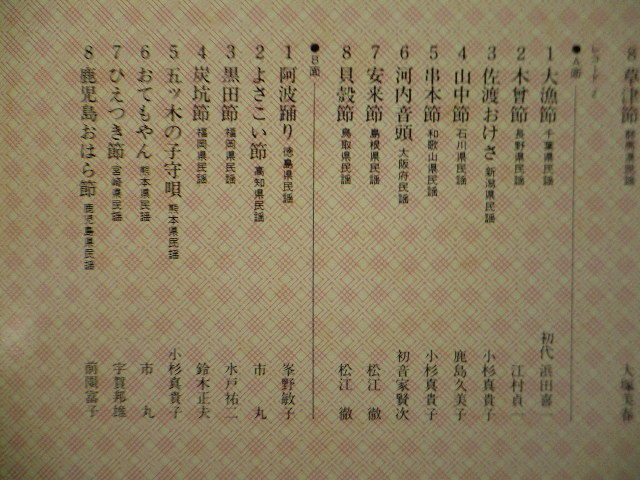 8 草津節 群馬県民謡 大塚美春
レコード・2
●A面
1 大漁節 千葉県民謡 初代 浜田喜一
2 木曽節 長野県民謡 江村貞一
3 佐渡おけさ 新潟県民謡 小杉真貴子
4 山中節 石川県民謡 鹿島久美子
5 串本節 和歌山県民謡 小杉真貴子
6 河内音頭 大阪府民謡 初音家賢次
7 安来節 島根県民謡 松江 徹
8 貝殻節 鳥取県民謡 松江 徹
●B面
1 阿波踊り 徳島県民謡 峯野敏子
2 よさこい節 高知県民謡 市 丸
3 黒田節 福岡県民謡 水戸祐二
4 炭坑節 福岡県民謡 鈴木正夫
5 五ッ木の子守唄 熊本県民謡 小杉真貴子
6 おてもやん 熊本県民謡 市 丸
7 ひえつき節 宮崎県民謡 宇賀邦雄
8 鹿児島おはら節 鹿児島県民謡 前園富子